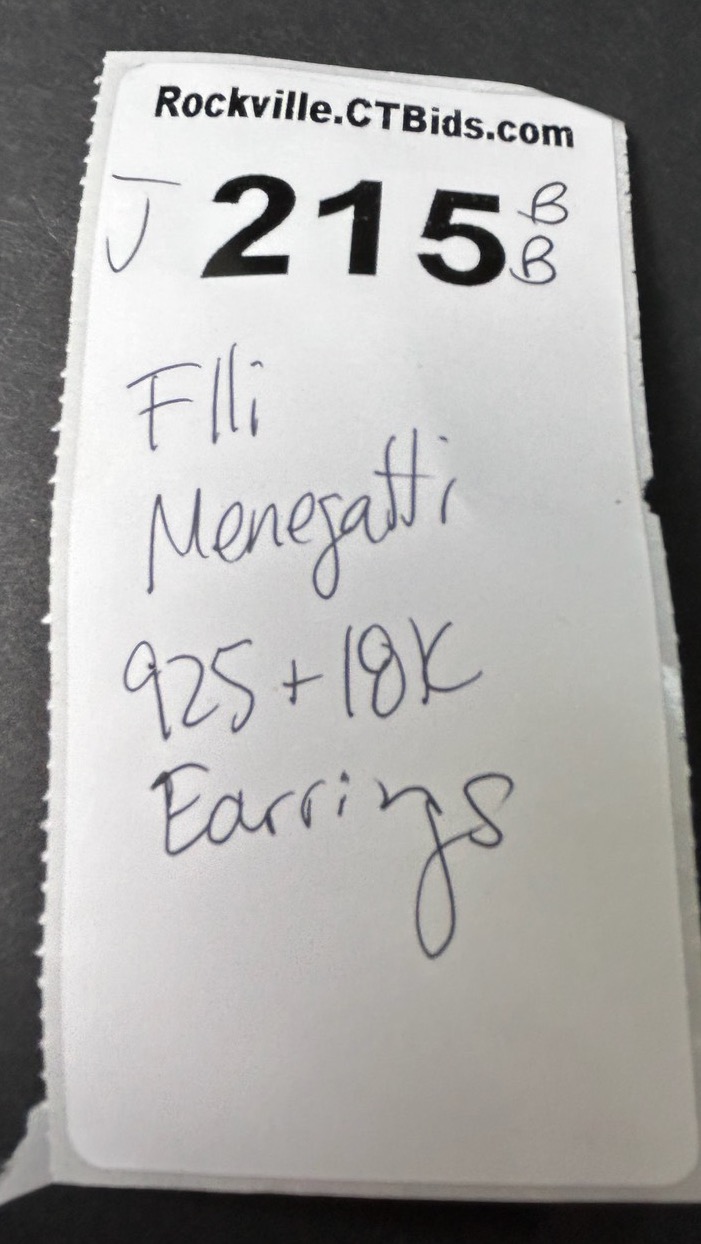 Rockville.CTBids.com
J 215 B
B
Flli
Menegatti
925 + 18K
Earrings